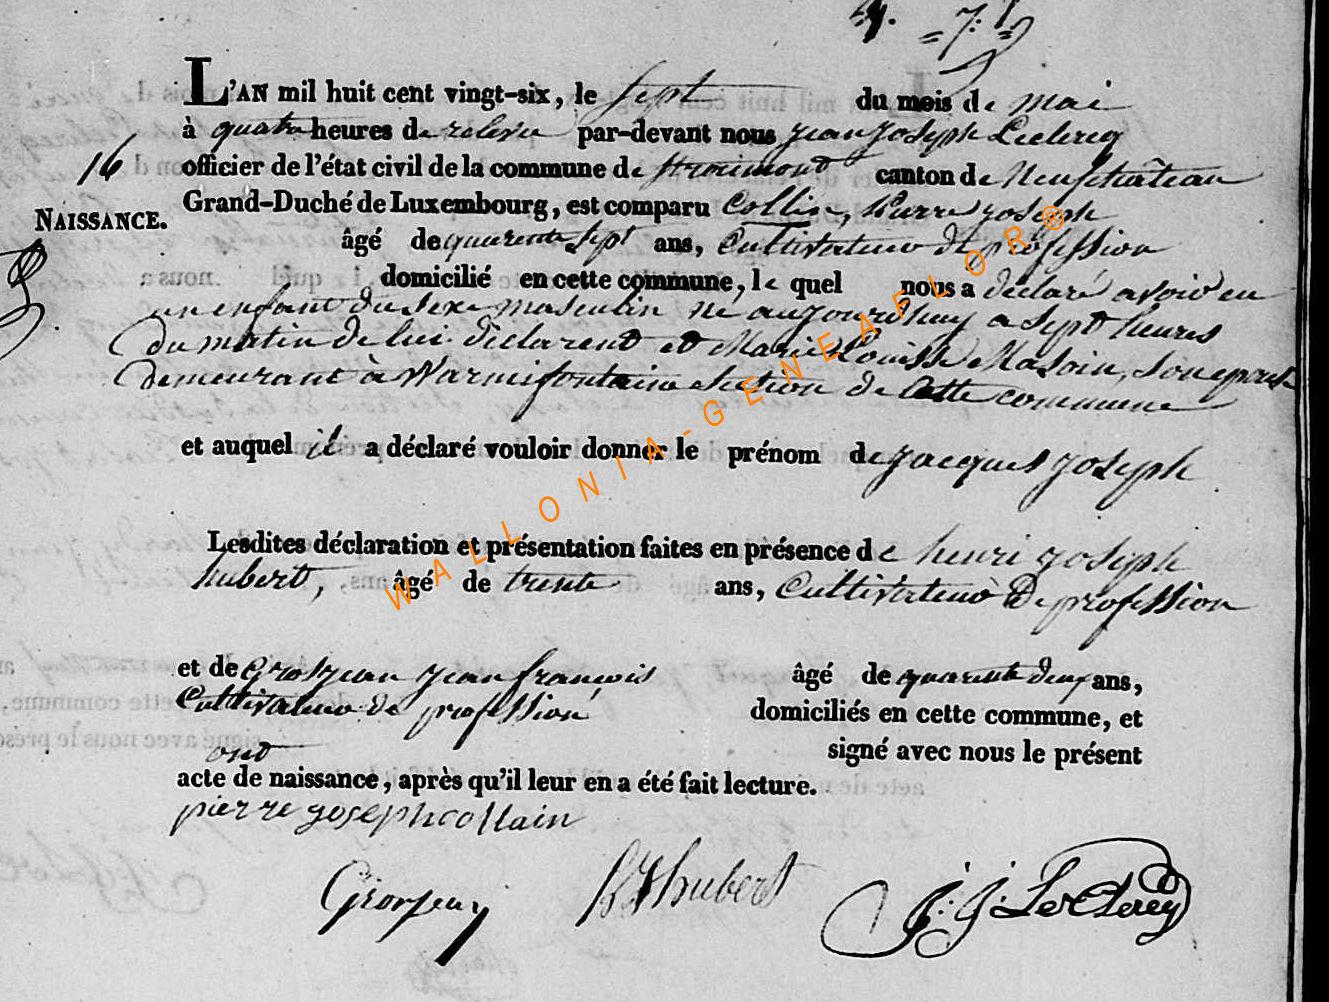 = 7: =
L'AN mil huit cent vingt-six, le sept du mois de mai
à quatre heures de relevée par-devant nous jean joseph Leclercq
16 officier de l'état civil de la commune de Straimont canton de Neufchâteau
NAISSANCE. Grand-Duché de Luxembourg, est comparu Collin, Pierre joseph
âgé de quarente sept ans, Cultivateur de profession
domicilié en cette commune, le quel nous a déclaré avoir eu
un enfant du sexe masculin né aujourdhuy a sept heures
du matin de lui déclarent et Marie Louisse Masoin, son epouse
demeurant à Warmifontaine section de Cette commune
et auquel il a déclaré vouloir donner le prénom de jacques joseph
Lesdites déclaration et présentation faites en présence de henri joseph
hubert, âgé de trente ans, Cultivateur de profession
et de Grosjean jean françois âgé de quarente deux ans,
Cultivateur de profession domiciliés en cette commune, et
ont signé avec nous le présent
acte de naissance, après qu'il leur en a été fait lecture.
pierre joseph collain
Grosjean hubert J: J: LeClercq
WALLONIA-GENEAFLOR®